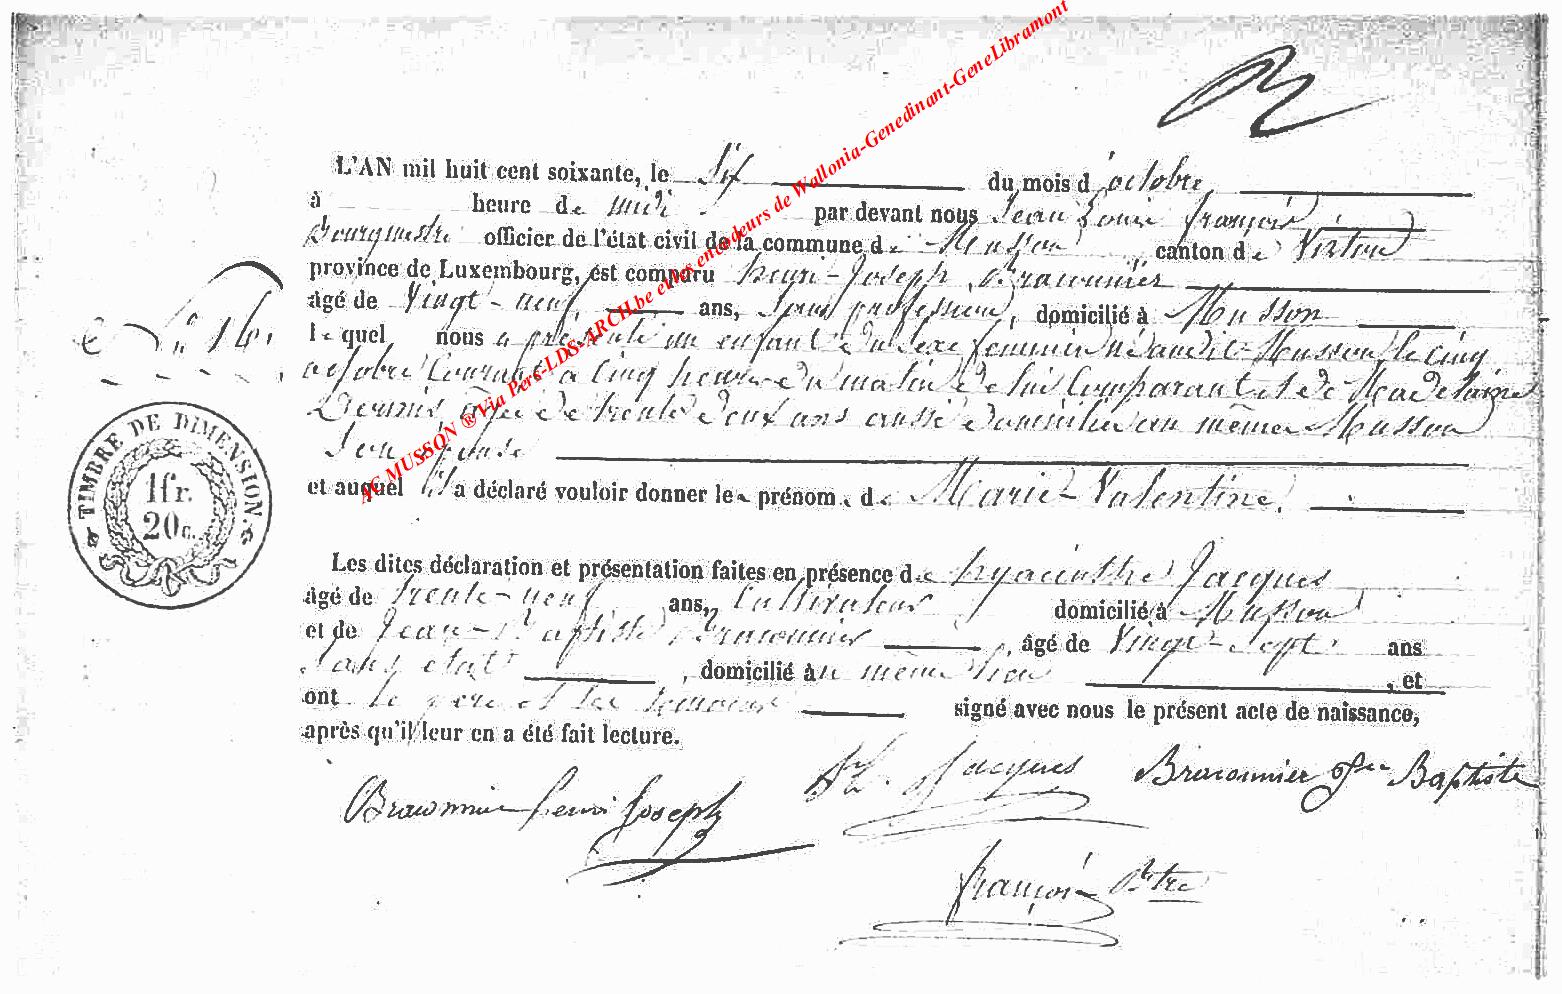 AC MUSSON ® Via Pers-LDS-ARCH.be et les encodeurs de Wallonia-Genedinant-GeneLibramont
L'AN mil huit cent soixante, le Six du mois d'octobre
à heure de midi par devant nous Jean Louis françois
Bourgmestre officier de l'état civil de la commune de Musson, canton de Virton
province de Luxembourg, est comparu henri-Joseph Braconnier
âgé de Vingt-neuf ans, Sans profession, domicilié à Musson
N° 16.
le quel nous a présenté un enfant du Sexe féminin né audit Musson, le Cinq
octobre Courant à Cinq heures du matin de lui Comparant et de Madelaine
âgée de trente deux ans aussi domiciliée au même Musson
Son épouse
et auquel il a déclaré vouloir donner les prénoms de Marie-Valentine.
TIMBRE DE DIMENSION
1 fr.
20 c.
Les dites déclaration et présentation faites en présence de hyacinthe Jacques
âgé de trente-neuf ans, Cultivateur domicilié à Musson
et de Jean-Baptiste Braconnier, âgé de Vingt-Sept ans
Sans état, domicilié au même lieu, et
ont le père et les témoins signé avec nous le présent acte de naissance,
après qu'il leur en a été fait lecture.
Braconnier henri Joseph
Jacques
Braconnier Jn Baptiste
françois Bstre